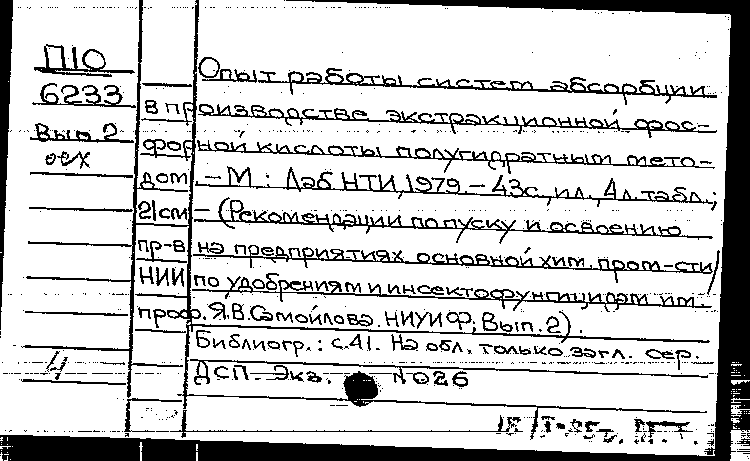 П10
6233
Вып.2
осх
Опыт работы систем абсорбции
в производстве экстракционной фос-
форной кислоты полугидратным мето-
дом. – М.: Лаб НТИ, 1979. – 43с., ил., 4л. табл.;
21см – (Рекомендации по пуску и освоению
пр-в на предприятиях основной хим. пром-сти/
НИИ по удобрениям и инсектофунгицидам им.
проф. Я.В. Самойлова. НИУИФ; Вып. 2).
Библиогр.: с.41. На обл. только загл. сер.
4
ДСП. Экз. N026